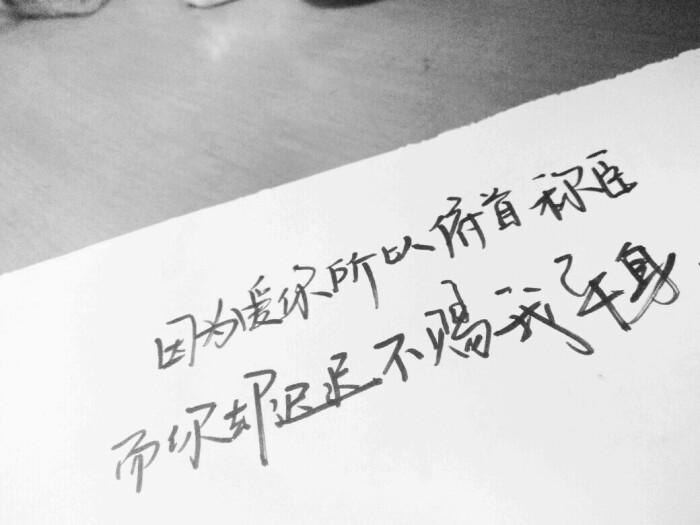 因为爱你所以俯首称臣
而你却迟迟不赐我平身.